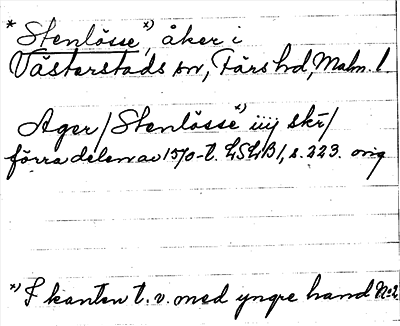 * Stenlösse *), åker i
Västerstads sn, Färs hd, Malm. l
Ager / Stenlösse *) iiij skr /
förra delen av 1570-t. LSLB 1, s. 223. orig
*) I kanten t. v. med yngre hand N:2